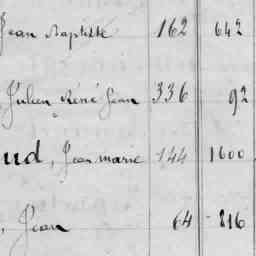 Jean Baptiste 162 642
Julien René Jean 336 92
ud, Jean marie 144 1600
, Jean 64 816